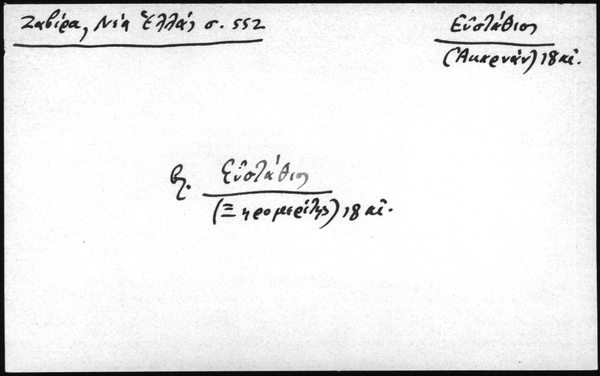 Ζαβίρα, Νέα Ἑλλάς σ. 552
Εὐστάθιος
(Ἀκαρνάν) 18 αἰ.
βλ. Εὐστάθιος
(Ξηρομερίτης) 18 αἰ.